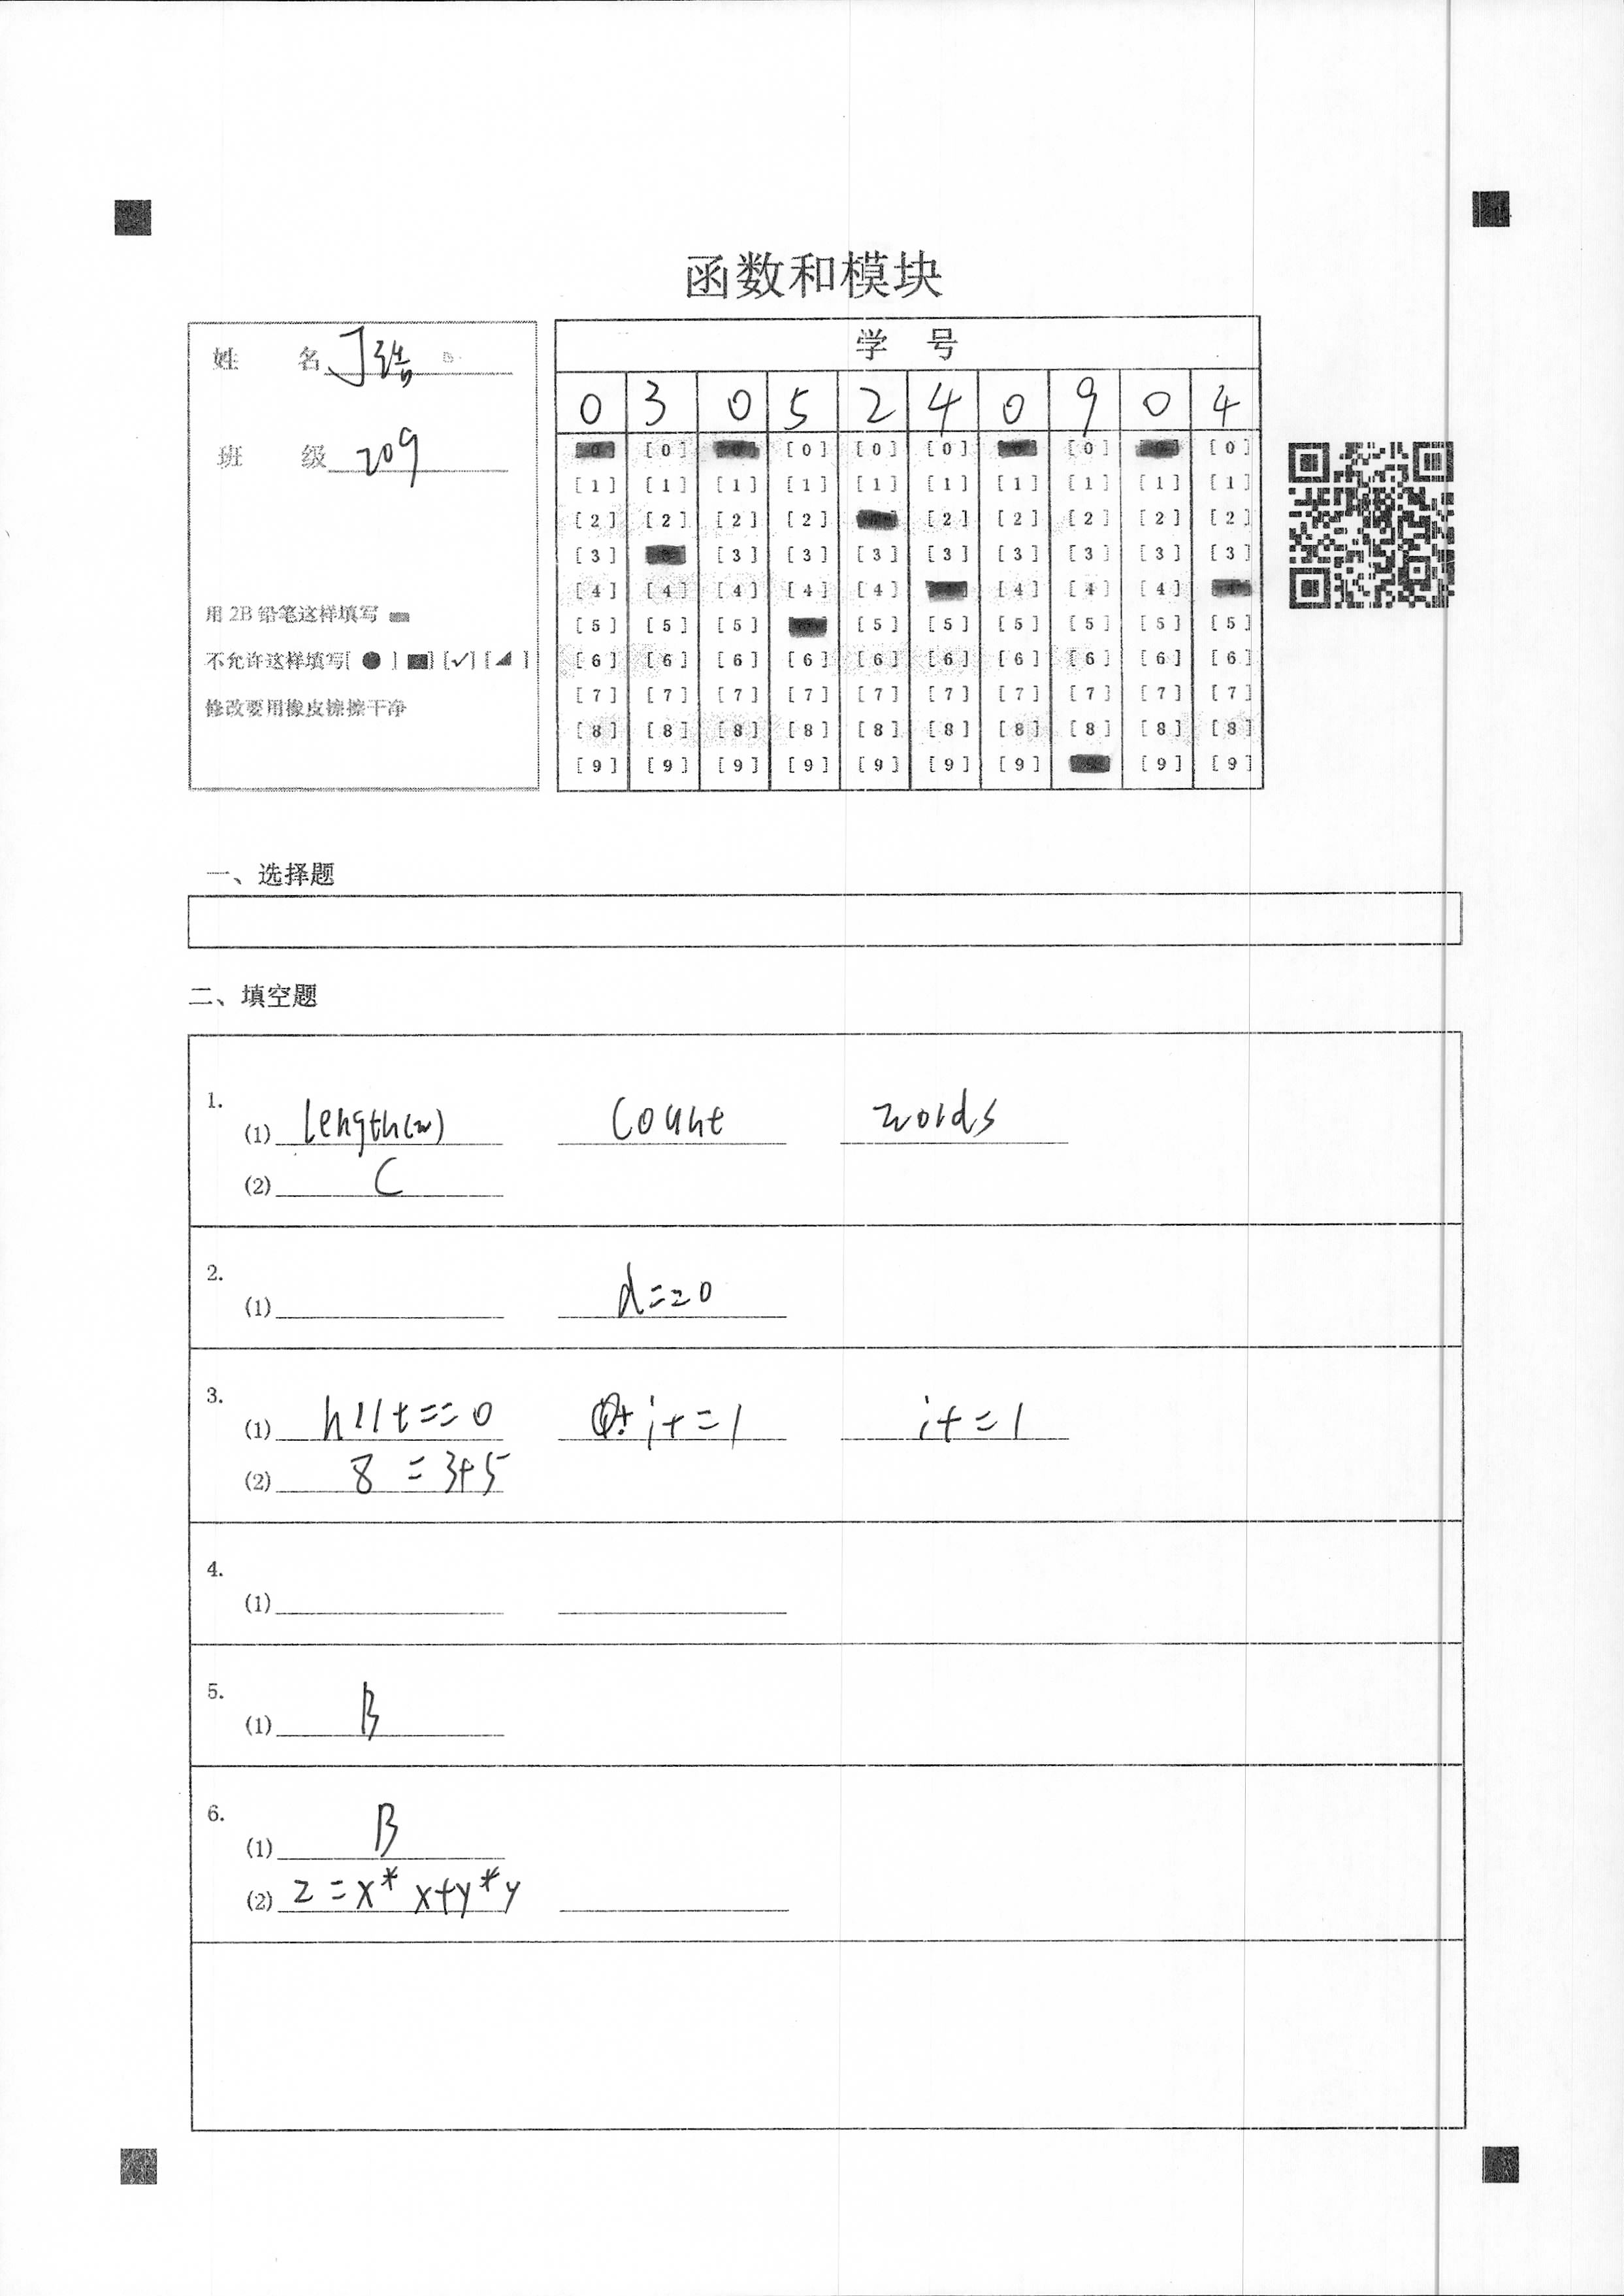 函数和模块
姓 名 丁
班 级 209
用 2B 铅笔这样填写
不允许这样填写[ ● ] [■] [✓] [◢ ]
修改要用橡皮擦擦干净
学 号
0 3 0 5 2 4 0 9 0 4
[0] [0] [0] [0] [0] [0] [0] [0] [0] [0]
[1] [1] [1] [1] [1] [1] [1] [1] [1] [1]
[2] [2] [2] [2] [2] [2] [2] [2] [2]
[3] [3] [3] [3] [3] [3] [3] [3] [3]
[4] [4] [4] [4] [4] [4] [4] [4]
[5] [5] [5] [5] [5] [5] [5] [5] [5]
[6] [6] [6] [6] [6] [6] [6] [6] [6] [6]
[7] [7] [7] [7] [7] [7] [7] [7] [7] [7]
[8] [8] [8] [8] [8] [8] [8] [8] [8] [8]
[9] [9] [9] [9] [9] [9] [9] [9] [9]
一、选择题
二、填空题
1.
(1) length(w) count words
(2) C
2.
(1) d=20
3.
(1) h1lt==0 i+=1 i+=1
(2) 8=3+5
4.
(1)
5.
(1) B
6.
(1) B
(2) z=x*x+y*y